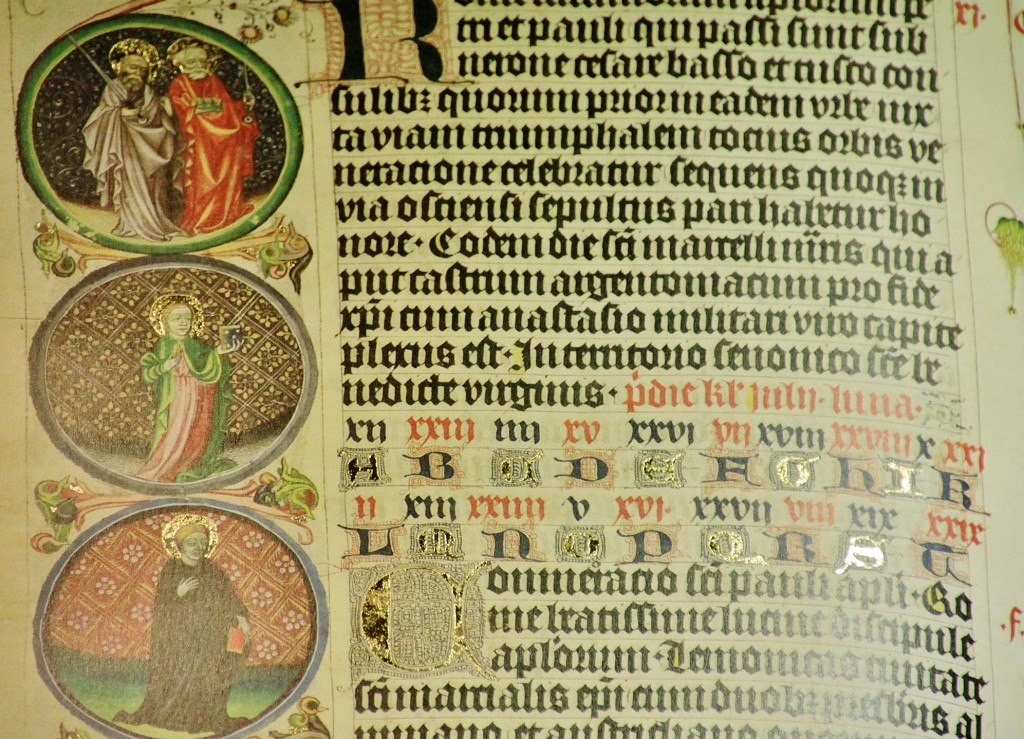 aplorum pe
tri et pauli qui passi sunt sub
nerone cesare basso et tusco con
sulibꝫ quorum prior in eadem vrbe iux
ta viam triumphalem tocius orbis ve
neracione celebratur sequens quoqꝫ in
via osciensi sepultus pari habetur ho
nore · Eodem die sci marcellini mris qui a
put castrum argentomacum pro fide
xpi cum anastasio militari viro capite
plexus est · In territorio senonico sce be
nedicte virginis · pdie kl julij · luna ·
xi·
xii xxiii iiii xv xxvi vii xviii xxviii x xxi
A B C D E F G H I K
ii xiii xxiiii v xvi· xxvii viii xix xxix
L M N O P Q R S T
Commeracio sci pauli apli · Ro
me beatissime lucine discipule
aplorum · Lemonicas ciuitate
sci marcialis epi cum duobꝫ presbris al
piniano et austricliano quorum
·f·